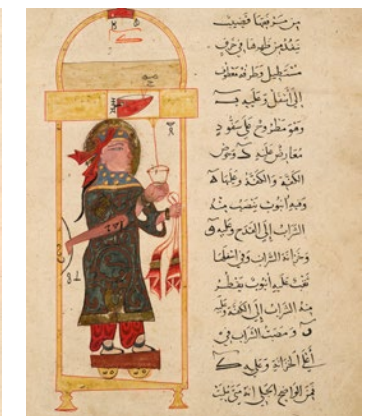 من مرفقها قضيب
ينفذ من ظهرها في خرق
مستطيل وطرفه معقف
إلى أسفل وعليه
وهو مطروح على سفود
معارض عليه
الكفة والكفة وعليها ه
وفيه أنبوب ينصب منه
الشراب إلى القدح وعليه ف
وخزانة الشراب وفي أسفلها
ثقب عليه أنبوب يقطر
منه الشراب إلى الكفة وعليه
ومصب الشراب في
أعلى الخزانة وعليه ك
فمن الواضح الجلي أنه متى